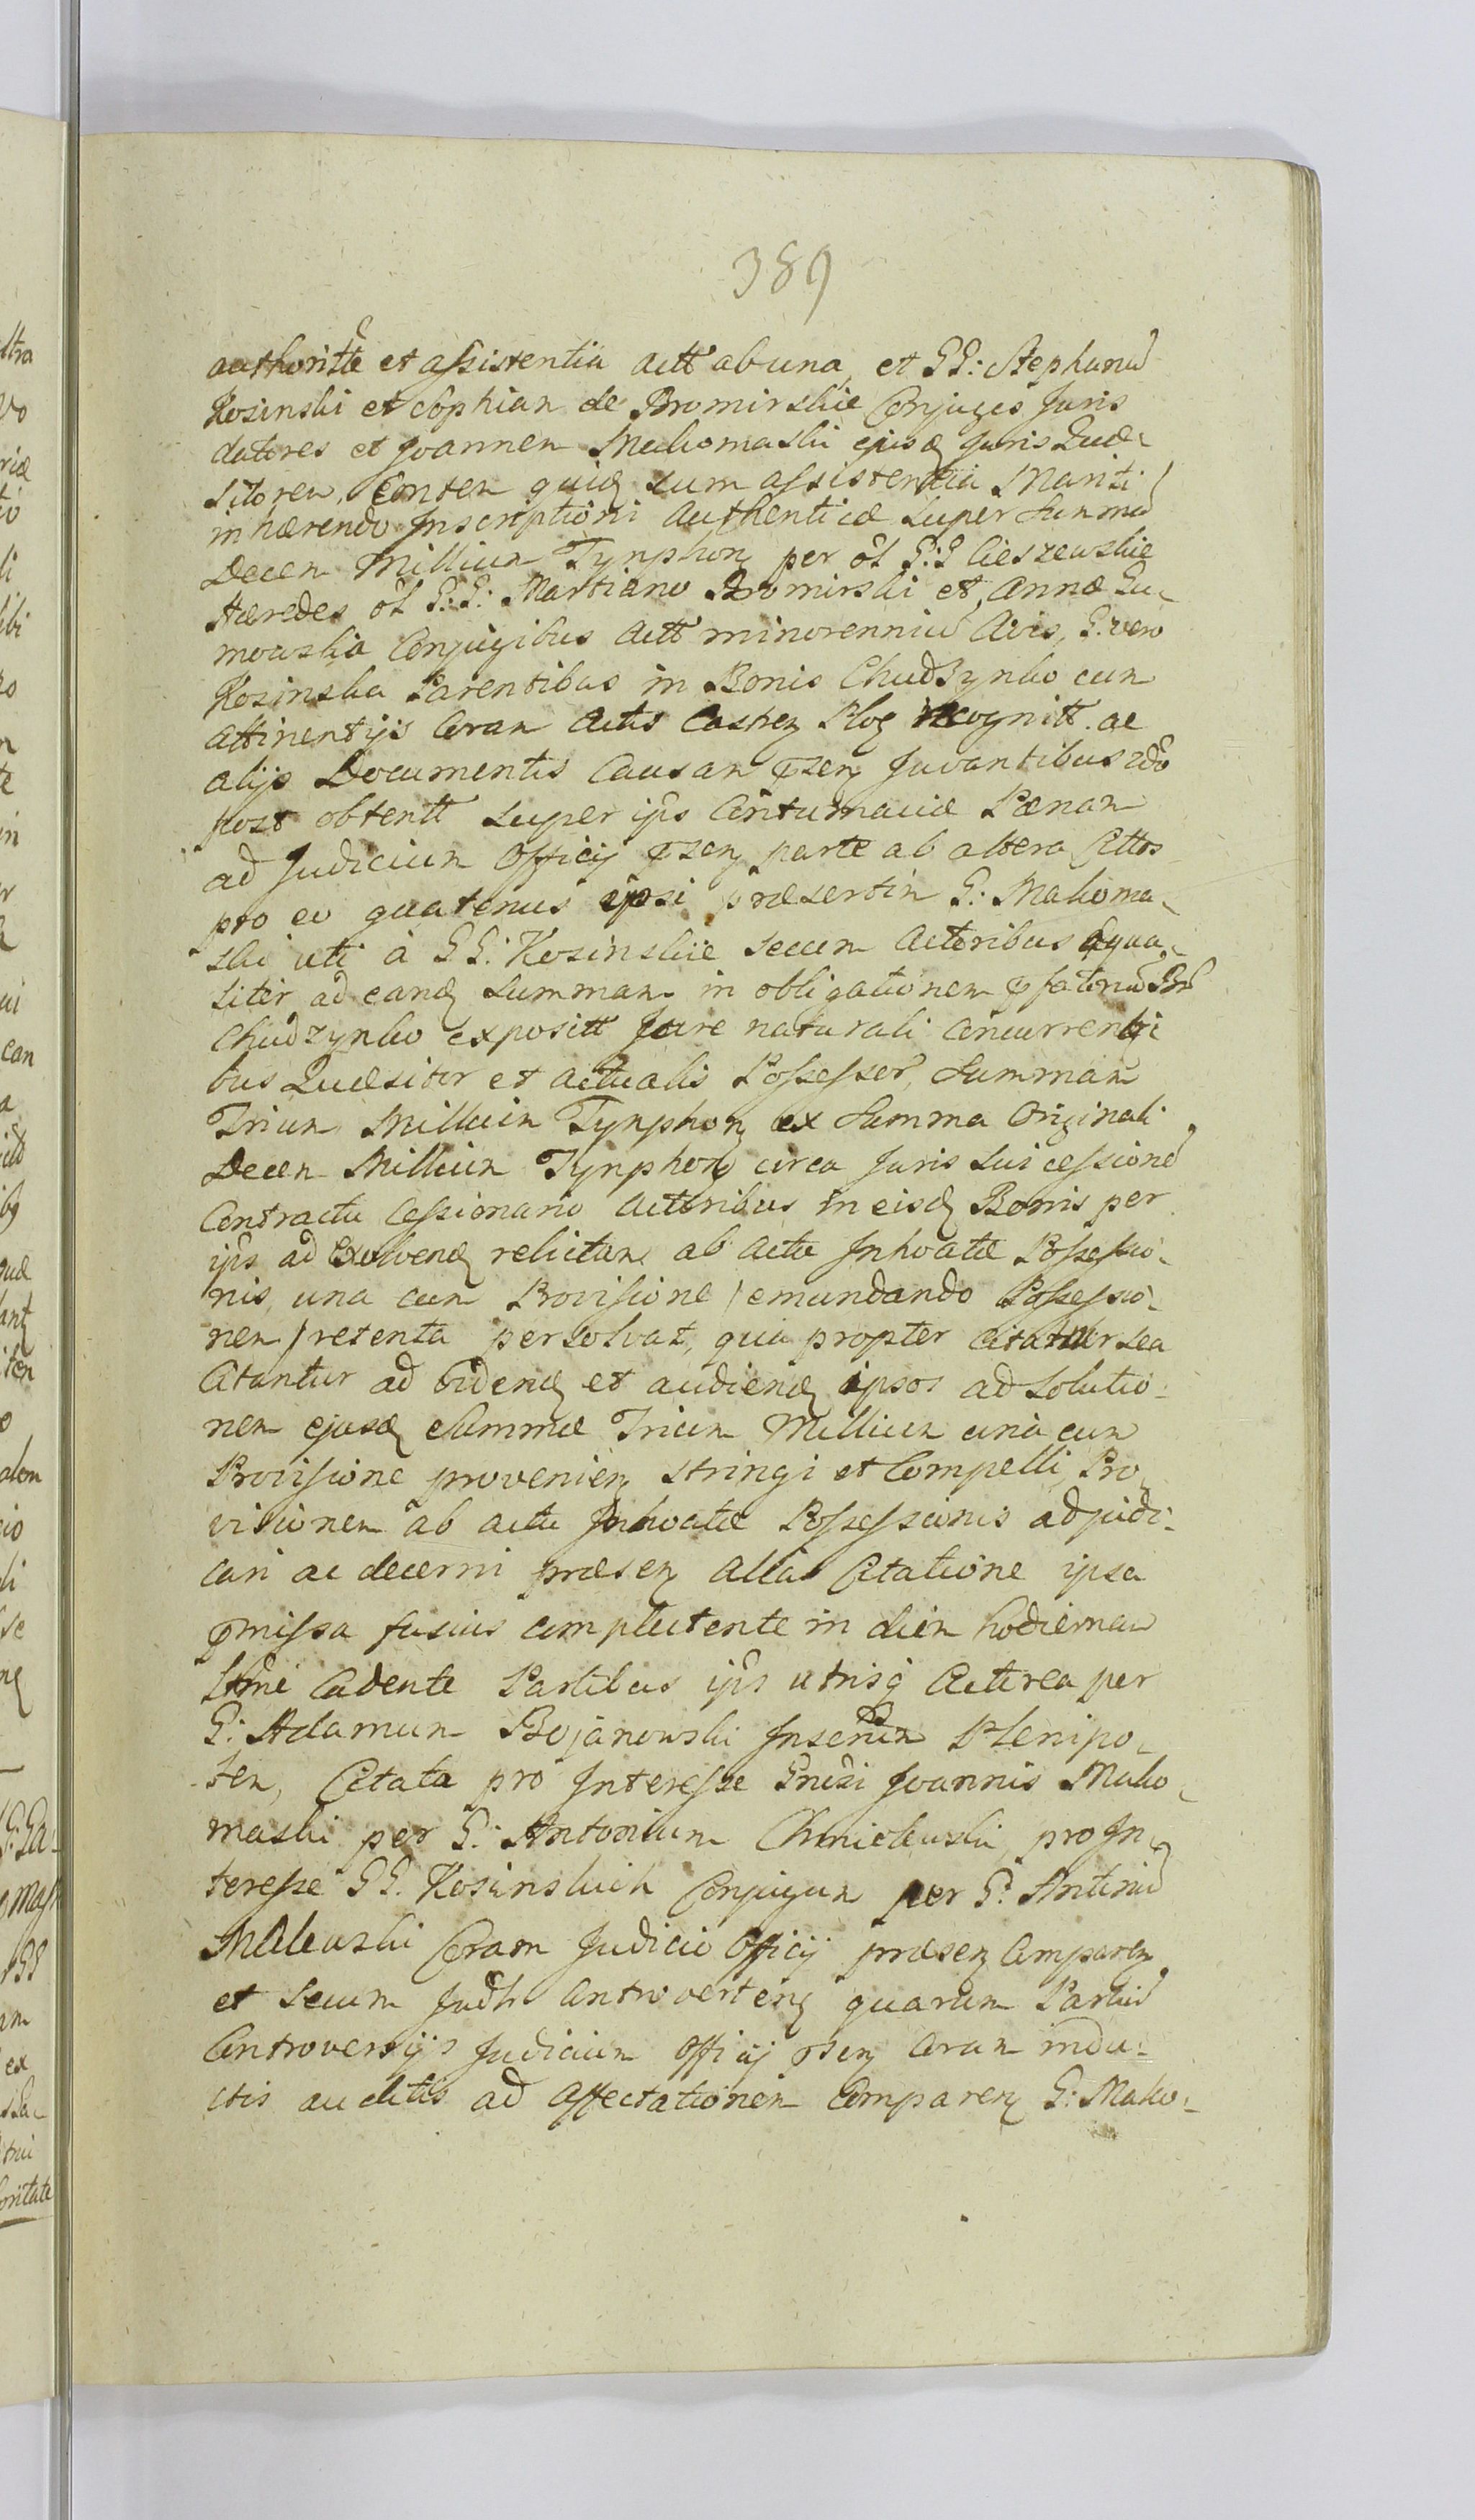 389
authoritte et assistentia actt ab una, et GG: Stephanū
Kosinski et Sophiam de Bromirskie Conjuges Juris
datores et Joannem Makomaski ejusq Juris Quæ-
sitorem, Conten quidq cum assistentia Mariti
inhærendo Inscriptioni Authenticæ super Summā
Decem Millium Tynphorq per ol G:G Cieszewskie
Hæredes ol G:G: Martiano Bromirski et Annæ Lu-
mowska Conjugibus actt minorenniū Avis, G: vero
Kosinska Parentibus in Bonis Chudzynko cum
attinentijs Coram Actis Castrq Plog recognitt ac
alijs Documentis Causam psenq Juvantibus
post obtentt super ips Contumaciæ Pænam
ad Judicium Officij psenq parte ab altera Cittos
pro eo quatenus ipsi præsertim G: Makoma-
ski uti à GG: Kosinskie secum Actoribus Aqua-
litèr ad eandq Summam in obligationem pfatorū Bo
Chudzynko expositt Jure naturali concurrenti
bus Quæsitor et Actualis Possessor, Summam
Trium Millium Tynphorq ex Summa Originali
Decem Millium Tynphorq circa Juris sui cessionē
Contractu Cessionario Actoribus in eisdq Bonis per
ips ad exolvendq relictam ab actu Inhoatæ Possessio-
nis, una cum Provisione / emundando Possessio-
nem / retenta persolvat, qua propter citatur seu
Citantur ad videndq et audiendq ipsos ad solutio-
nem ejusdq Summæ Trium Millium una cum
Provisione provenienq stringi et Compelli, Pro-
visionem ab actu Inhoatæ Possessionis adjudi-
cari ac decerni præsenq alia Citatione ipsa
pmissa fusius complectente in diem hodiernam
Cadente Partibus ips utrisq Actorea per
G: Adamum Bojanowski Plenipo-
ten, Citata pro Interesse Gnrsi Joannis Mako-
maski per G: Antonium Chmielewski, pro In-
teresse GG. Kosinskich Conjugum per G: Antoniū
Milewski Coram Judicio Officij præsenq Comparenq
et secum Judlr Controvertenq quarum Partiū
Controversijs Judicium Officij psenq Coram indu-
ctis auditis ad affectationem Comparenq G: Mako-